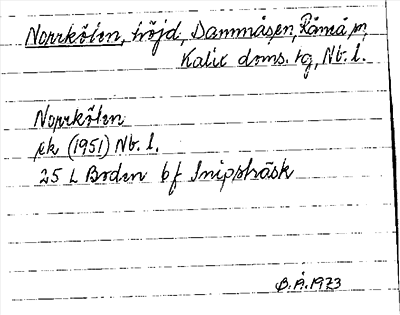 Norrkölen, höjd, Dammåsen, Råmå, m,
Kalix doms. tg, Nb. l.
Norrkölen
ek (1951) Nb. l.
25 L Boden bf Snipträsk
B.Å. 1973